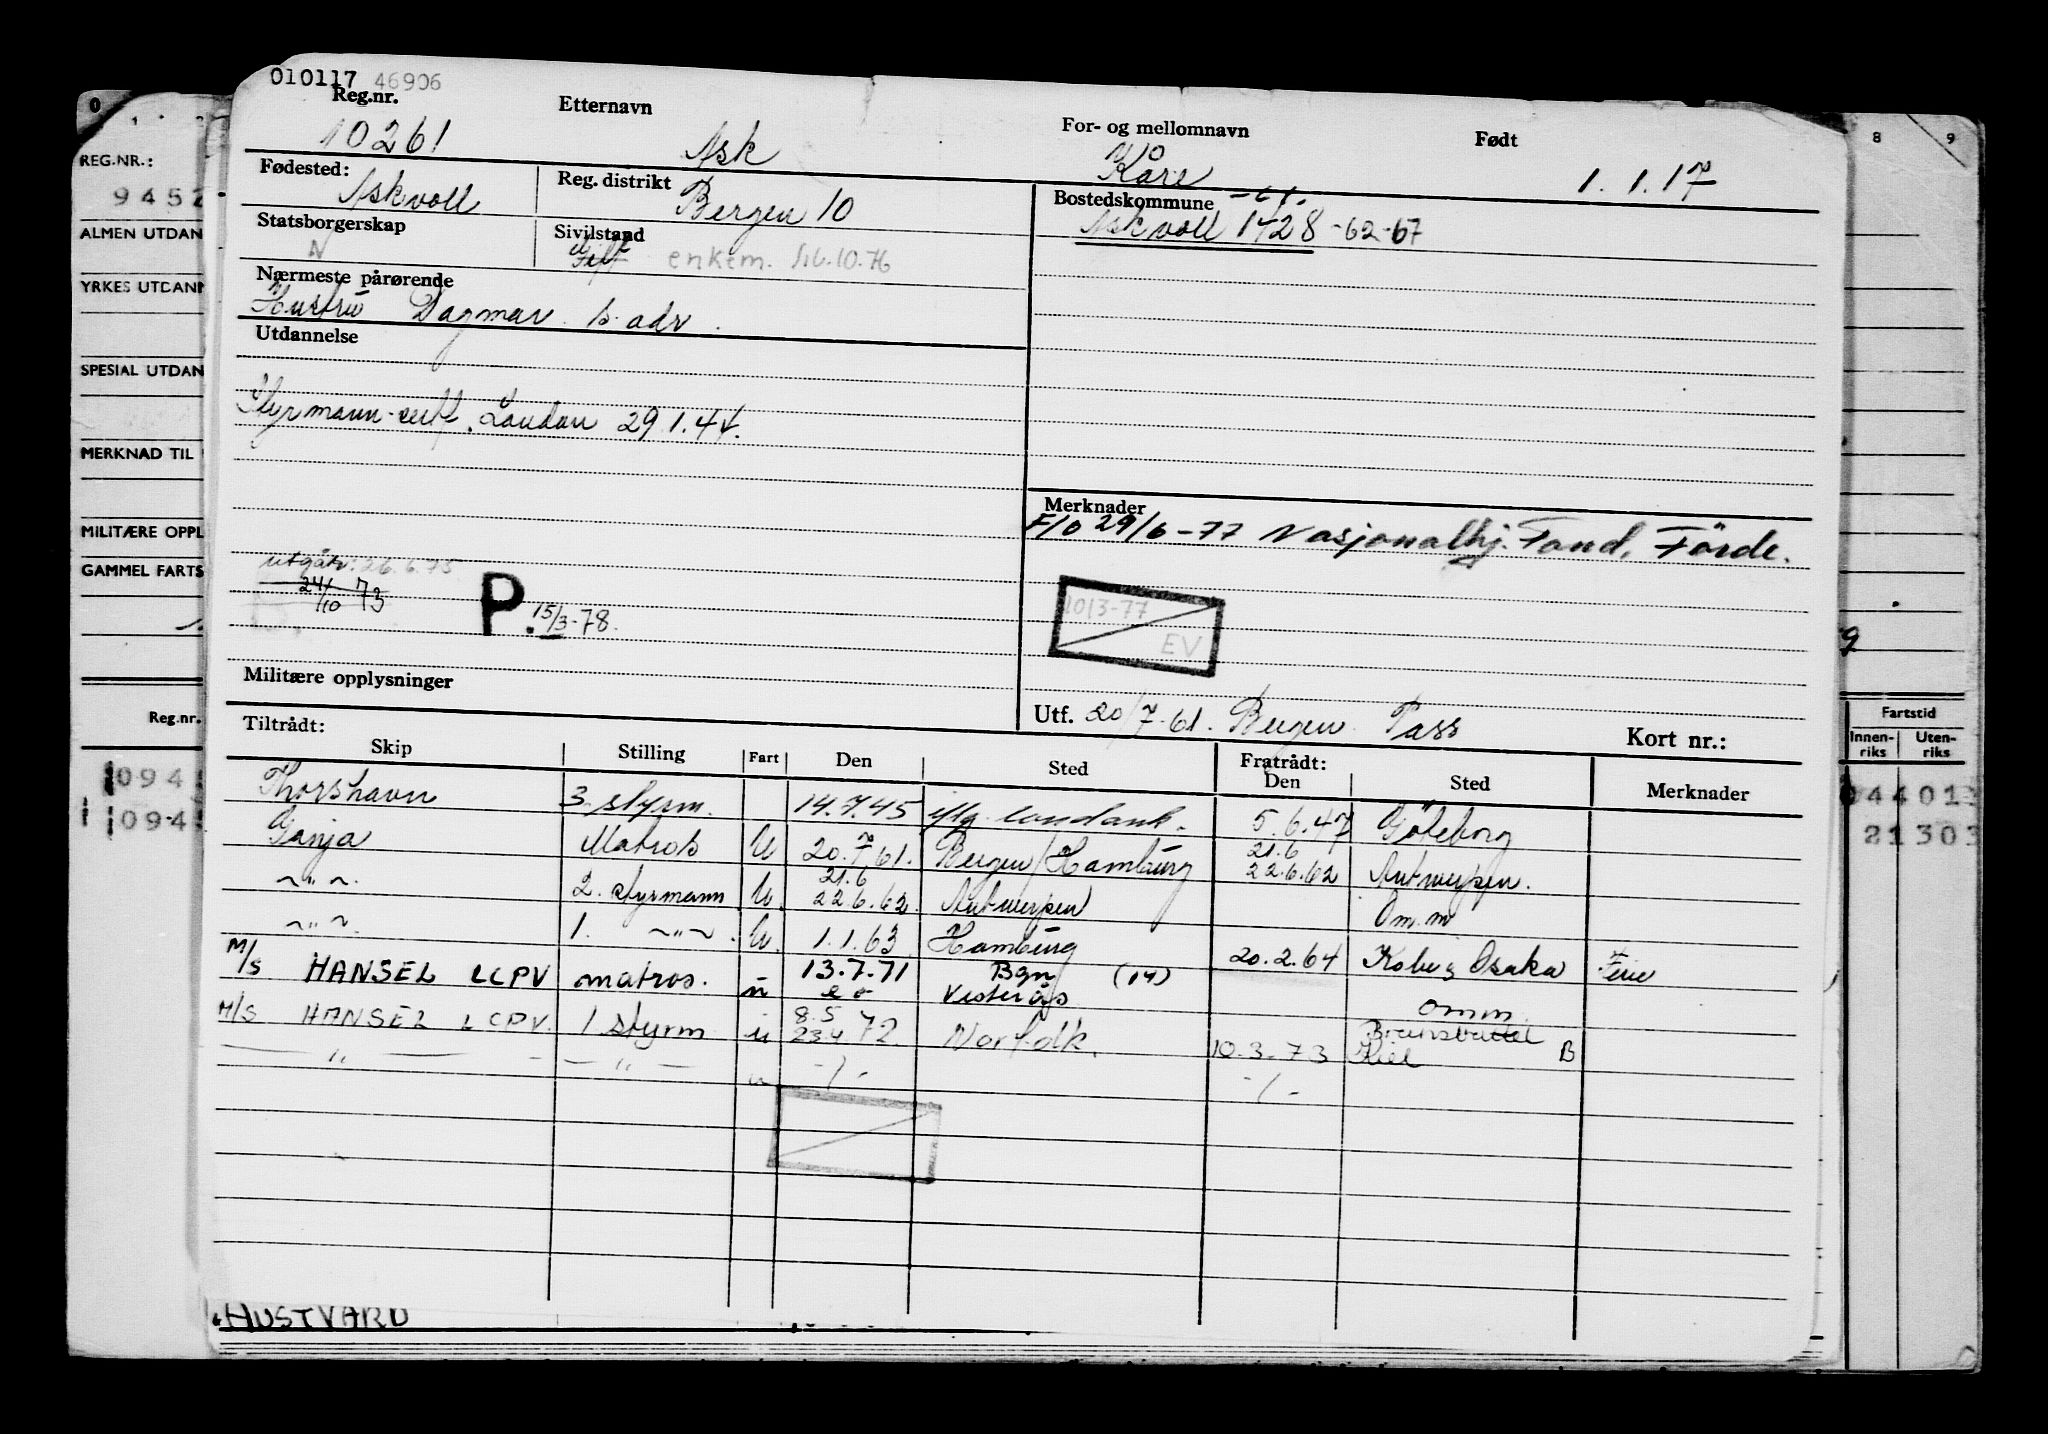 010117 46906
Reg.nr. Etternavn For- og mellomnavn Født
10261 Ask Kåre 1.1.17
Fødested: Askvoll Reg. distrikt Bergen 10 Bostedskommune -61.
Askvoll 1428 -62-67
Statsborgerskap N Sivilstand Gift enkem. 16.10.76
Nærmeste pårørende
Hustru Dagmar s. adr.
Utdannelse
Styrmann-cert. London 29.1.44.
Merknader
F/O 29/6-77 Nasjonalhj. Fond, Förde.
utgått: 26.6.75
24/10 73
P. 15/3-78.
10/3-77
EV
Militære opplysninger
Utf. 20/7-61. Bergen Pass Kort nr.:
Tiltrådt: Fratrådt:
Skip Stilling Fart Den Sted Den Sted Merknader
Thorshavn 3. styrm. 14.7.45 iflg. 5.6.47 Göteborg
Tanja Matros U 20.7.61. Bergen/Hamburg 21.6 22.6.62 Antwerpen.
-"- 2. styrmann U. 21.6 22.6.62. Antwerpen Om.m
-"- 1. -"- U. 1.1.63 Hamburg 20.2.64 Kobe, Osaka Ferie
M/S HANSEL LCPV matros. u 13.7.71 Bgn (14) Vesterås omm
M/S HANSEL LCPV. 1 styrm u 8.5 23.4 72. Norfolk. 10.3.73 Brunsbüttel Kiel B
-"- -"- u -/- -/-
REG.NR.:
9452
ALMEN UTDAN
YRKES UTDANN
SPESIAL UTDAN
MERKNAD TIL
MILITÆRE OPPL
GAMMEL FARTS
Reg.nr.
094
094
HUSTVARD
0
8 9
9
Fartstid
Innen-riks Uten-riks
44013
21303